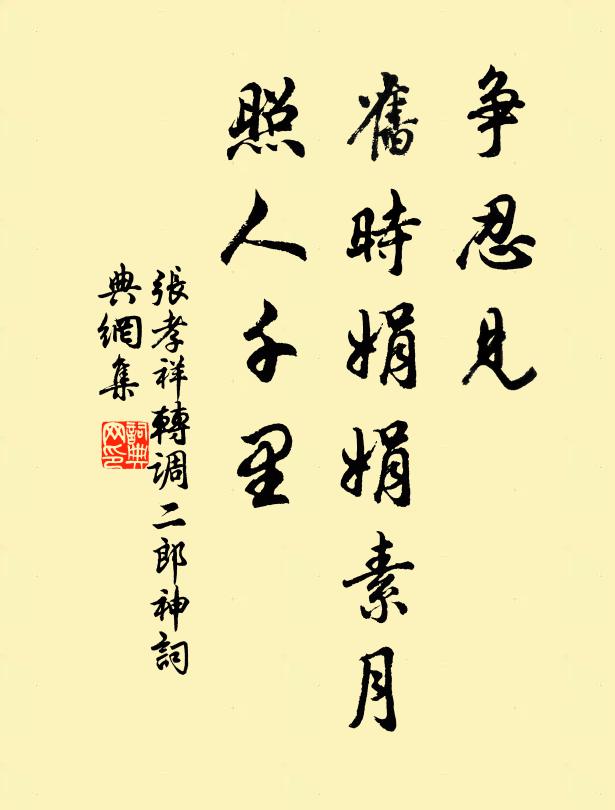 争忍见
舊時娟娟素月
照人千里
張孝祥轉调二郎神詞
典網集
詞典網印